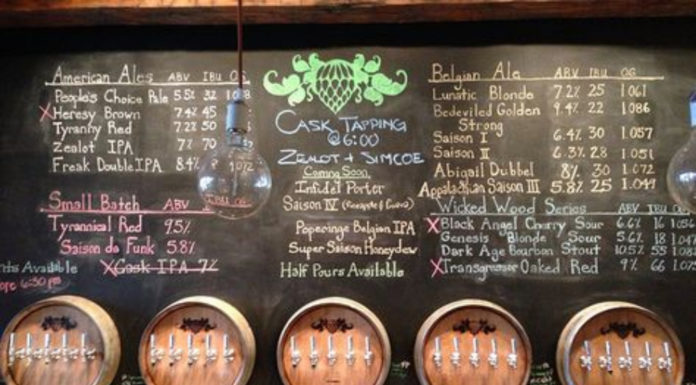 American Ales ABV IBU OG
People's Choice Pale 5.5% 32
X Heresy Brown 7.4% 45
Tyranny Red 7.2% 50
Zealot IPA 7% 70
Freak Double IPA 8.4%
Small Batch ABV IBU OG
Tyrannical Red 9.5%
Saison da Funk 5.8%
X Cask IPA 7%
nts Available
ore 6:30 pm
Cask Tapping
@ 6:00
Zealot + Simcoe
Coming Soon
Infidel Porter
Saison IV
Poperinge Belgian IPA
Super Saison Honeydew
Half Pours Available
Belgian Ale ABV IBU OG
Lunatic Blonde 7.2% 25 1.061
Bedeviled Golden 9.4% 22 1.086
Strong
Saison I 6.4% 30 1.057
Saison II 6.3% 28 1.051
Abigail Dubbel 8% 30 1.072
Appalachian Saison III 5.8% 25 1.047
Wicked Wood Series ABV IBU OG
X Black Angel Cherry Sour 6.6% 16
Genesis Blonde Sour 5.6% 18
Dark Age Bourbon Stout 10.5% 55
X Transgressor Oaked Red 9% 66